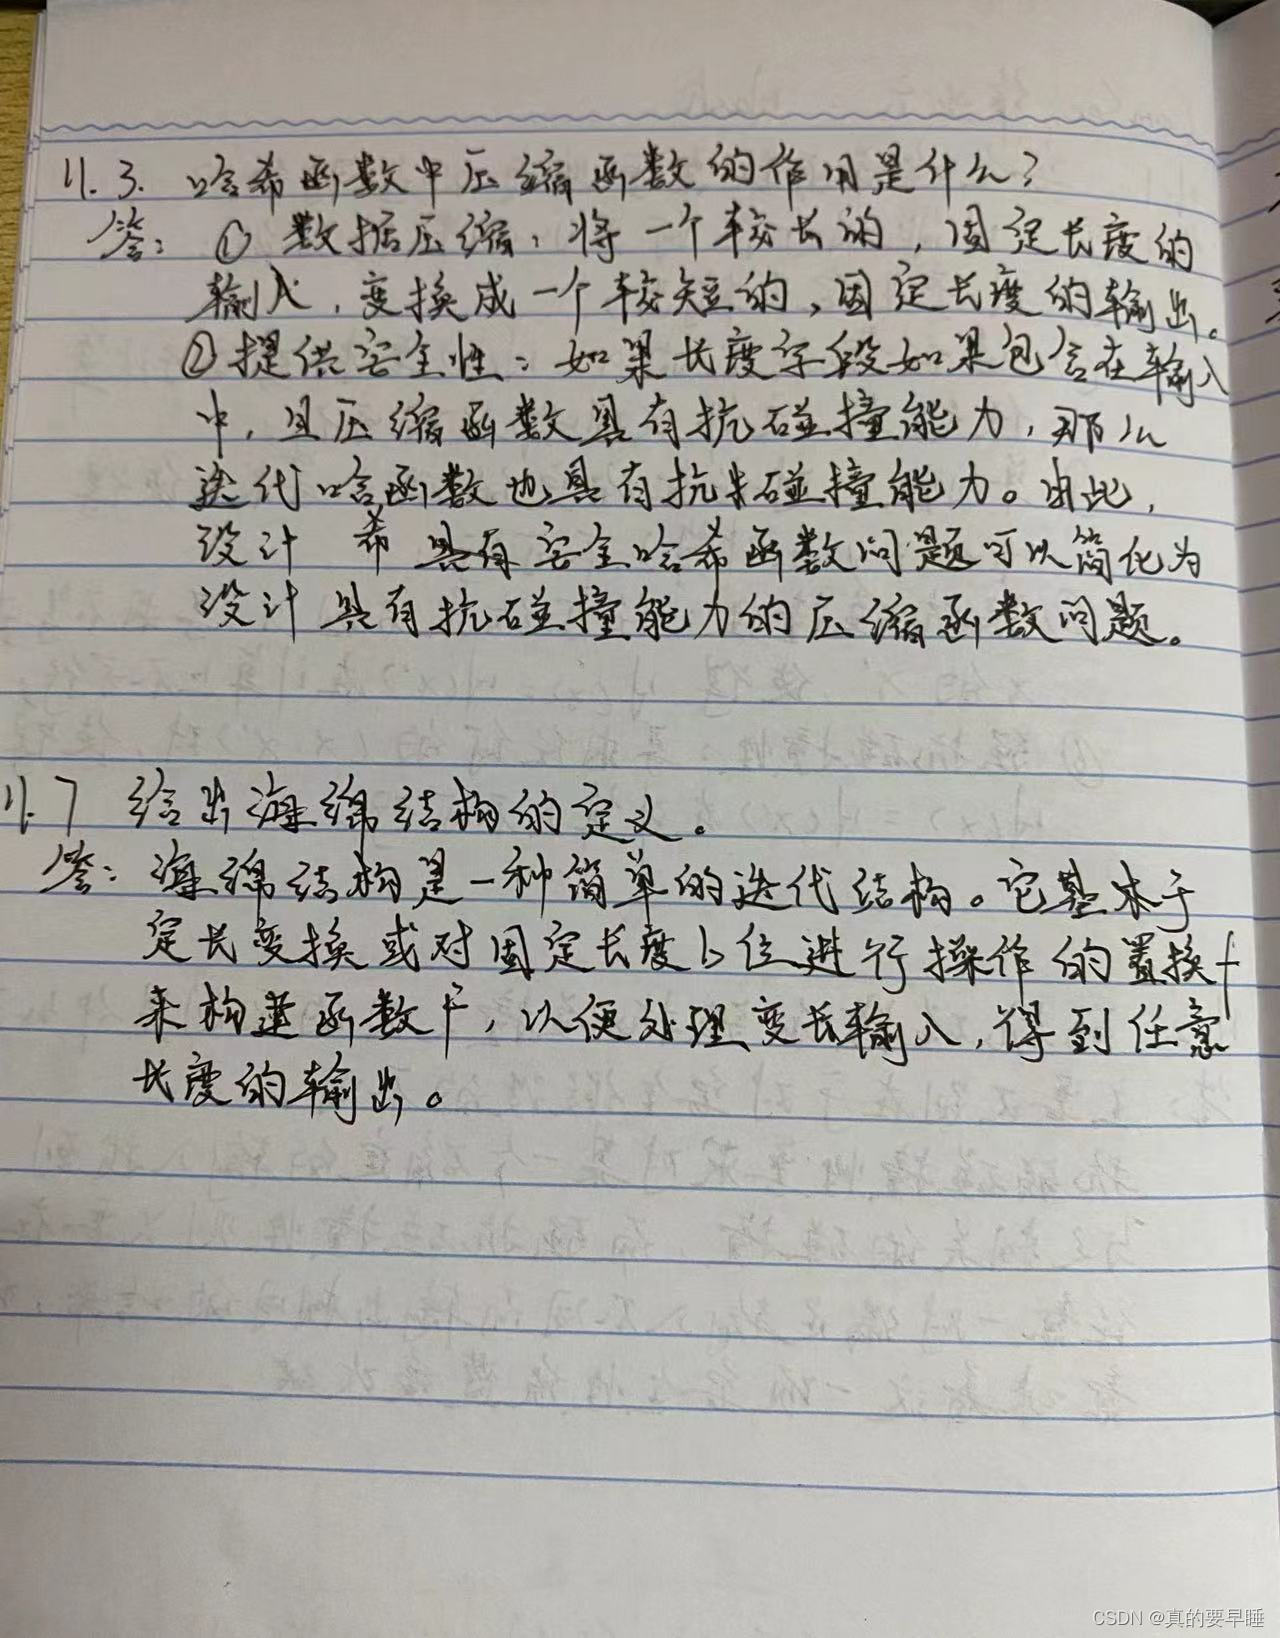 11.3. 哈希函数中压缩函数的作用是什么?
答: ① 数据压缩:将一个较长的,固定长度的
输入,变换成一个较短的,固定长度的输出。
②提供安全性:如果长度字段如果包含在输入
中,且压缩函数具有抗碰撞能力,那么
迭代哈函数也具有抗碰撞能力。由此,
设计 希 具有安全哈希函数问题可以简化为
设计具有抗碰撞能力的压缩函数问题。
11.7 给出海绵结构的定义。
答:海绵结构是一种简单的迭代结构。它基本于
定长变换或对固定长度b位进行操作的置换f
来构造函数F,以便处理变长输入,得到任意
长度的输出。
CSDN @真的要早睡